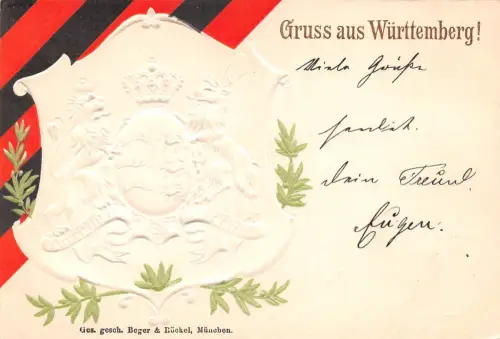 Gruss aus Württemberg!
Viele Grüße
sendet
dein Freund
Eugen.
Ges. gesch. Beger & Röckel, München.